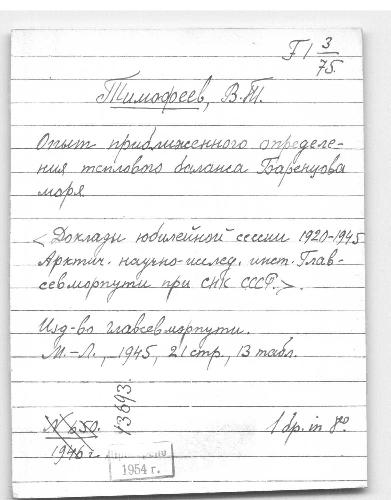 F1 3/75.
Тимофеев, В.Т.
Опыт приближенного определе-
ния теплового баланса Баренцова
моря
<Доклады юбилейной сессии 1920-1945
Арктич. научно-исслед. инст. Глав-
севморпути при СНК СССР.>.
Изд-во главсевморпути.
М.-Л., 1945, 21 стр., 13 табл.
13693.
N 650.
1946 г.
1954 г.
1 бр. in 8º